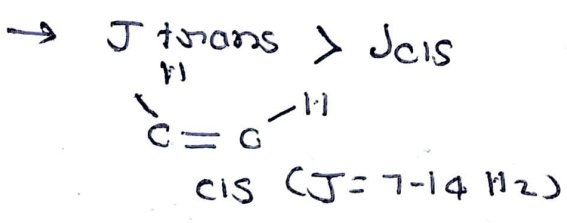 → J trans > Jcis
H
C = C - H
cis (J = 7-14 Hz)